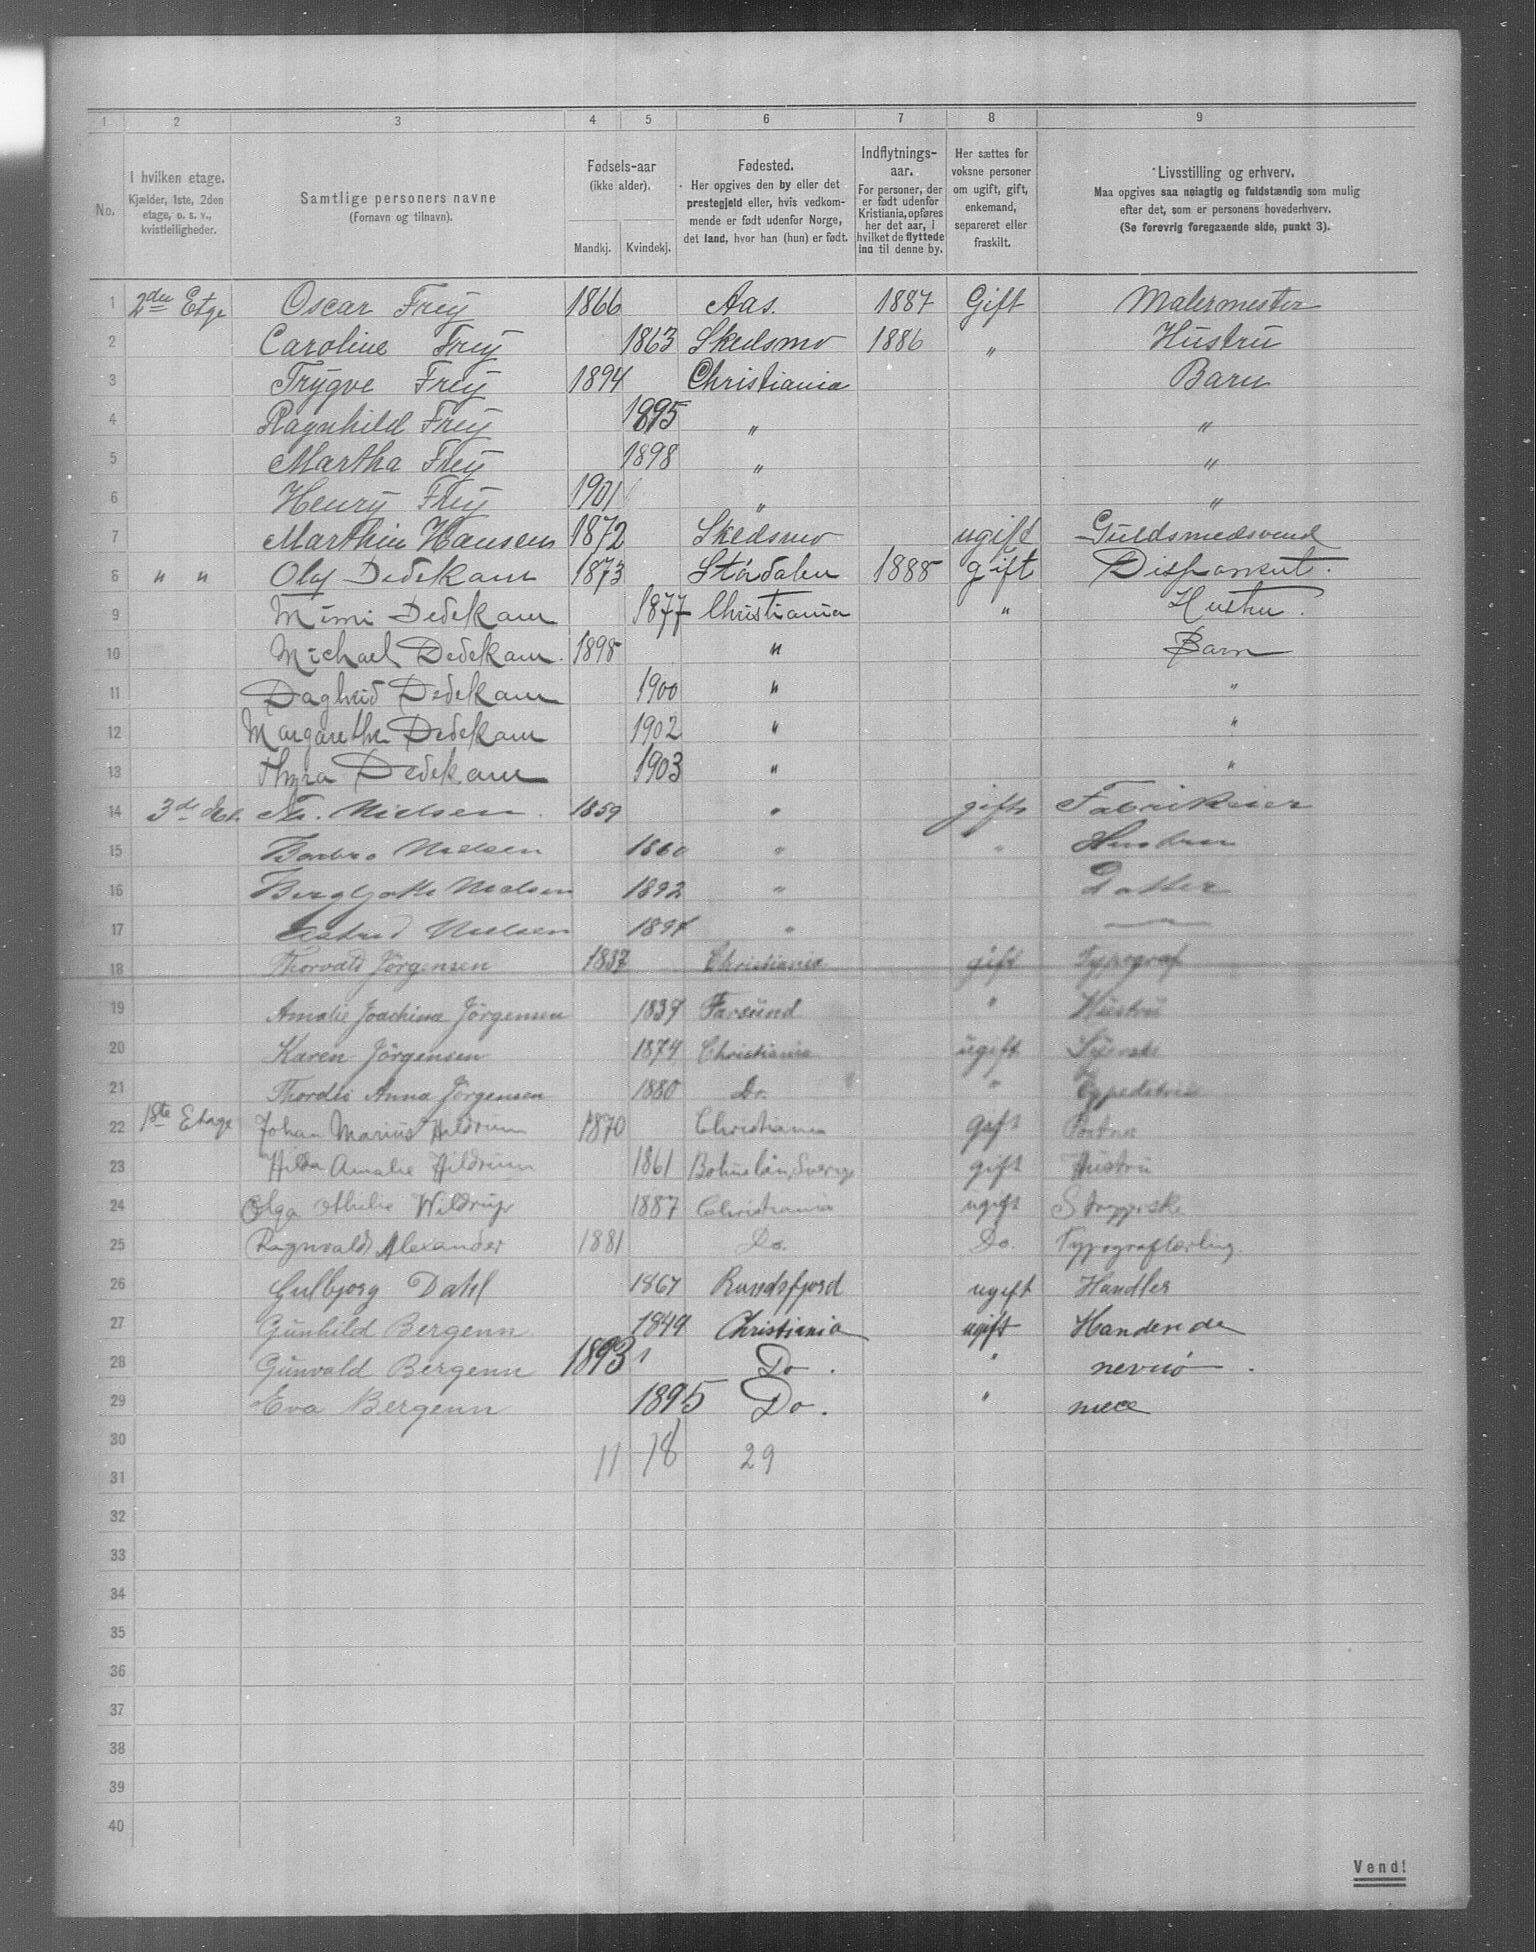 1 2 3 4 5 6 7 8 9
No.
I hvilken etage.
Kjælder, 1ste, 2den
etage, o. s. v.,
kvistleiligheder.
Samtlige personers navne
(Fornavn og tilnavn).
Fødsels-aar
(ikke alder).
Mandkj. Kvindekj.
Fødested.
Her opgives den by eller det
prestegjeld eller, hvis vedkom-
mende er født udenfor Norge,
det land, hvor han (hun) er født.
Indflytnings-
aar.
For personer, der
er født udenfor
Kristiania, opføres
her det aar, i
hvilket de flyttede
ind til denne by.
Her sættes for
voksne personer
om ugift, gift,
enkemand,
separeret eller
fraskilt.
Livsstilling og erhverv.
Maa opgives saa nøiagtig og fuldstændig som mulig
efter det, som er personens hovederhverv.
(Se forøvrig foregaaende side, punkt 3).
1 2den Etge Oscar Frey 1866 Aas. 1887 Gift Malermester
2 Caroline Frey 1863 Skedsmo 1886 " Hustru
3 Trygve Frey 1894 Christiania Barn
4 Ragnhild Frey 1895 " "
5 Martha Frey 1898 " "
6 Henry Frey 1901 " "
7 Marthin Hansen 1872 Skedsmo ugift Guldsmedsvend
8 " " Olaf Dedekam 1873 Stördalen 1888 gift Disponent.
9 Mimi Dedekam 1877 Christiania " Hustru.
10 Michael Dedekam. 1898 " Barn
11 Daghild Dedekam 1900 " "
12 Margarethe Dedekam 1902 " "
13 Thyra Dedekam 1903 " "
14 3de Et. Th. Nielsen. 1859 " gift Fabrikeier
15 Barbro Nielsen 1860 " " Hustru
16 Bergljotte Nielsen 1892 " Datter
17 Astrid Nielsen 1894 "
18 Thorvald Jörgensen 1837 Christiania gift Typograf
19 Amalie Joachime Jörgensen 1839 Farsund " Hustru
20 Karen Jörgensen 1874 Christiania ugift Syerske
21 Thordis Anna Jörgensen 1880 Do. " Expeditrice
22 1ste Etage Johan Marius Hildrum 1870 Christiania gift Portner
23 Hilda Amalie Hildrum 1861 Bohuslän, Sverige gift Hustru
24 Olga Athelie Wildrup 1887 Christiania ugift
25 Ragnvald Alexander 1881 Do. Do. Typograflærling
26 Gulbjorg Dahl 1867 ugift Handler
27 Gunhild Bergenn 1849 Christiania ugift Handende
28 Gunvald Bergenn 1893 Do. " nevø
29 Eva Bergenn 1895 Do. " niece
30
31 11 18 29
32
33
34
35
36
37
38
39
40
Vend!